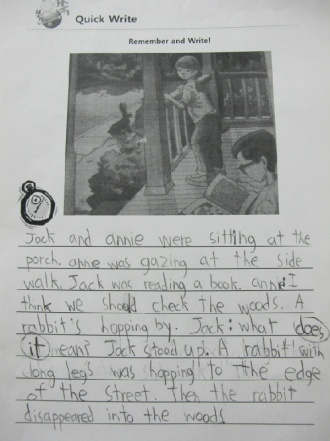 Quick Write
Remember and Write!
Jack and annie were sitting at the
porch. anne was gazing at the side
walk. Jack was reading a book. anne: I
think we should check the woods. A
rabbit's hopping by. Jack: what does
it mean? Jack stood up. A rabbit with
long legs was hopping to the edge
of the street. then the rabbit
disappeared into the woods